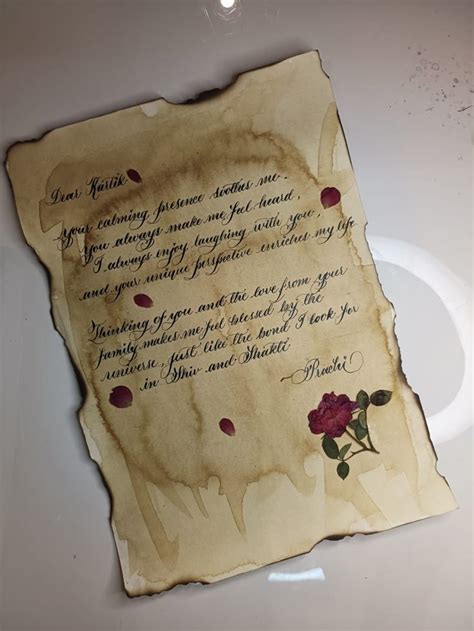 Dear Kartik
Your calming presence soothes me.
You always make me feel heard,
I always enjoy laughing with you,
and your unique perspective enriches my life
Thinking of you and the love from your
family makes me feel blessed by the
universe, just like the bond I look for
in Shiv and Shakti
~Prachi